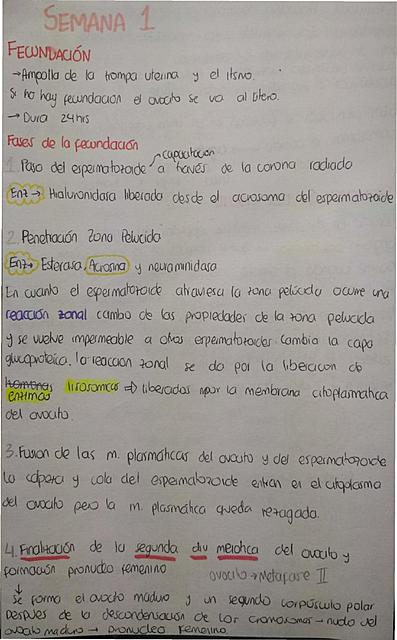 SEMANA 1
FECUNDACIÓN
→Ampolla de la trompa uterina y el itsmo.
Si no hay fecundacion el ovocito se va al útero.
→ Dura 24hrs
Fases de la fecundación
capacitación
1. Paso del espermatozoide a través de la corona radiada
Enz→ Hialuronidasa liberada desde el acrosoma del espermatozoide
2. Penetración Zona Pelucida
Enz→ Esterasa, Acrosina y neuraminidasa
En cuanto el espermatozoide atraviesa la zona pelúcida ocurre una
reacción zonal cambo de las propiedades de la zona pelucida
y se vuelve impermeable a otros espermatozoides cambia la capa
glucoproteica. la reaccion zonal se da por la liberación de
hormonas lisosomicas ⇒ liberados por la membrana citoplasmatica
enzimas
del ovocito.
3. Fusion de las m. plasmáticas del ovocito y del espermatozoide
la cabeza y cola del espermatozoide entran en el citoplasma
del ovocito pero la m. plasmática queda rezagada.
4. Finalización de la segunda div meiotica del ovocito y
formación pronucleo femenino
ovocito → Metafase II
↓
Se forma el ovocito maduro y un segundo corpúsculo polar
Despues de la descondensación de los cromosomas → nucleo del
ovocito maduro → pronucleo femenino